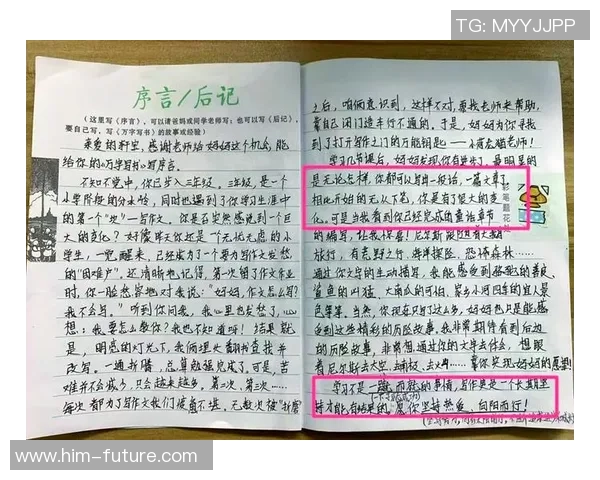 TG: MYYJJPP
序言/后记
(这里写《序言》,可以请爸妈或同学老师写;也可以写《后记》,
要自己写,写《万字写书》的故事或经验)
亲爱的轩宝,感谢老师给妈妈这个机会,能
给你的《万字写书》写序言。
不知不觉中,你已步入三年级。三年级,是一个
小学阶段的分水岭,同时也遇到了你学习生涯中
的第一个"次"—写作文。你是否突然感觉到一个巨
大的变化?好像昨天你还是一个无忧无虑的小
学生,一觉醒来,已经成为了一个要为写作文发愁
的"困难户"。还清晰地记得,第一次留了作文作业
时,你一脸愁容地对我说:"妈妈,作文怎么写?
我不会写。"听到你问我,我心里也发愁了,
想,我要怎么教你?我也不知道呀!结果就
是,明亮的灯光下,我俩埋头翻书查找并
改写。一通折腾,总算勉强完成了。可是,苦
难并不会减少,只会越来越多。第二次、第三次……
每次都为了写作文我们疲惫不堪。无数次被"折磨
之后,咱俩意识到,这样不对,要找老师来帮助,
靠自己闭门造车行不通的。于是,妈妈为你寻找
到了打开写作之门的万能钥匙——老师。
学习几节课后,妈妈发现你有进步了。最明显的
是无论怎样,你都可以写出一段话,一篇文章了。
相比开始的无从下笔,你是有了很大的变
化。可是当我看到你已经完成的童话章节
的编写,让我惊喜!尼尔斯
旅行,有荒野之行、海洋探险、恐怖森林……
通过你文字的生动描写,我能感受到的善良、
鲨鱼的凶猛、大南瓜的可怕、家乡小河四季的宜人景
色等等。当然,你现在只写了这么多,妈妈也只是能感
受到这些精彩的历险故事,我非常期待看到后边
的历险故事,非常想通过你的文字去体会,想跟
着尼尔斯去太空、去火山……靠你实现妈妈的愿望!
学习不是一蹴而就的事情,写作更是一个长期坚
持才能有结果的。愿你坚持热爱,向阳而行!
彩笔题花处
www.him-future.com